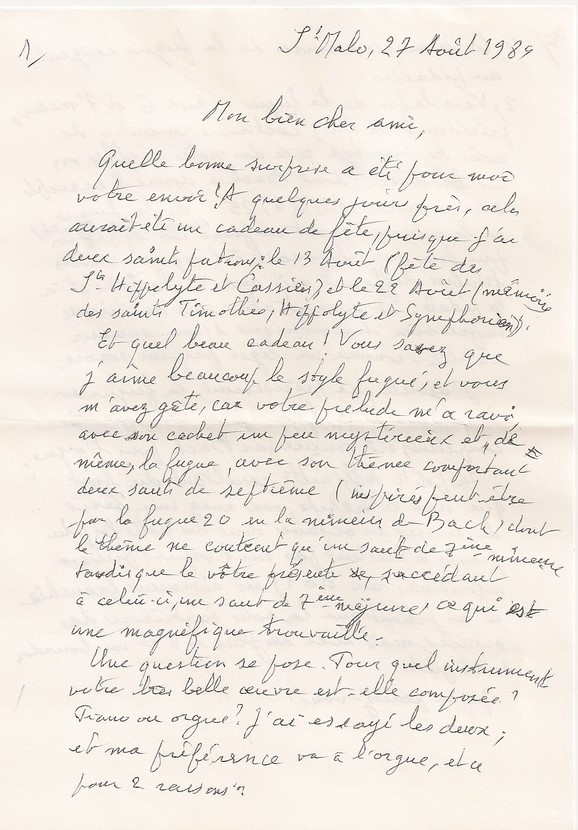 1/
St Malo, 27 Août 1989
Mon bien cher ami,
Quelle bonne surprise a été pour moi
votre envoi! A quelques jours près, cela
aurait été un cadeau de fête, puisque j'ai
deux saints patrons: le 13 Août (fête des
Sts Hippolyte et Cassien) et le 22 Août (mémoire
des saints Timothée, Hippolyte et Symphorien).
Et quel beau cadeau! Vous savez que
j'aime beaucoup le style fugué, et vous
m'avez gâté, car votre prélude m'a ravi
avec son cachet un peu mystérieux et, de
même, la fugue, avec son thème comportant
deux sauts de septième (inspirés peut-être
par la fugue 20 en la mineur de Bach) dont
le thème ne contient qu'un saut de 7ème mineure
tandis que le vôtre présente, succédant
à celui-ci, un saut de 7ème majeure, ce qui est
une magnifique trouvaille.
Une question se pose. Pour quel instrument
votre très belle œuvre est-elle composée?
Piano ou orgue? J'ai essayé les deux;
et ma préférence va à l'orgue, et ce
pour 2 raisons: